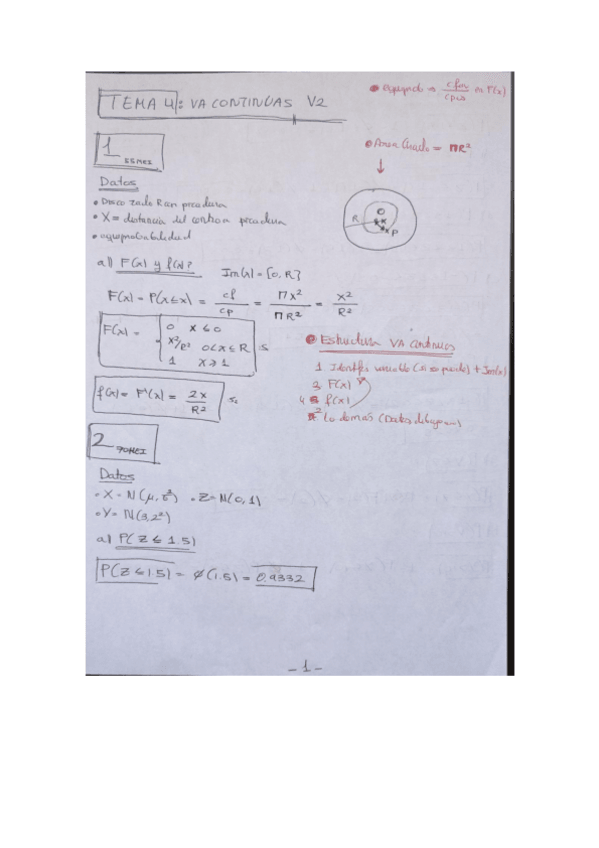 TEMA 4: VA CONTINUAS V2
cfav en F(x)
cpos
1
Area Circulo = πR²
Datos
Disco radio R con picadura
X = distancia del centro a picadura
equiprobabilidad
R O x P
a) F(x) y f(x)? Im(x) = [0, R]
F(x) = P(X≤x) = cf/cp = πx²/πR² = x²/R²
F(x) = 0 x ≤ 0
x²/R² 0<x≤R
1 x>1
Estructura VA continuas
1. Identificar variable (si se puede) + Im(x)
3. F(x)
f(x) = F'(x) = 2x/R²
4. f(x)
2. Lo demás (Datos, dibujo)
2
Datos
X = N(μ, σ²) Z = N(0,1)
Y = N(3, 2²)
a) P(Z ≤ 1.5)
P(Z ≤ 1.5) = φ(1.5) = 0.9332
- 1 -